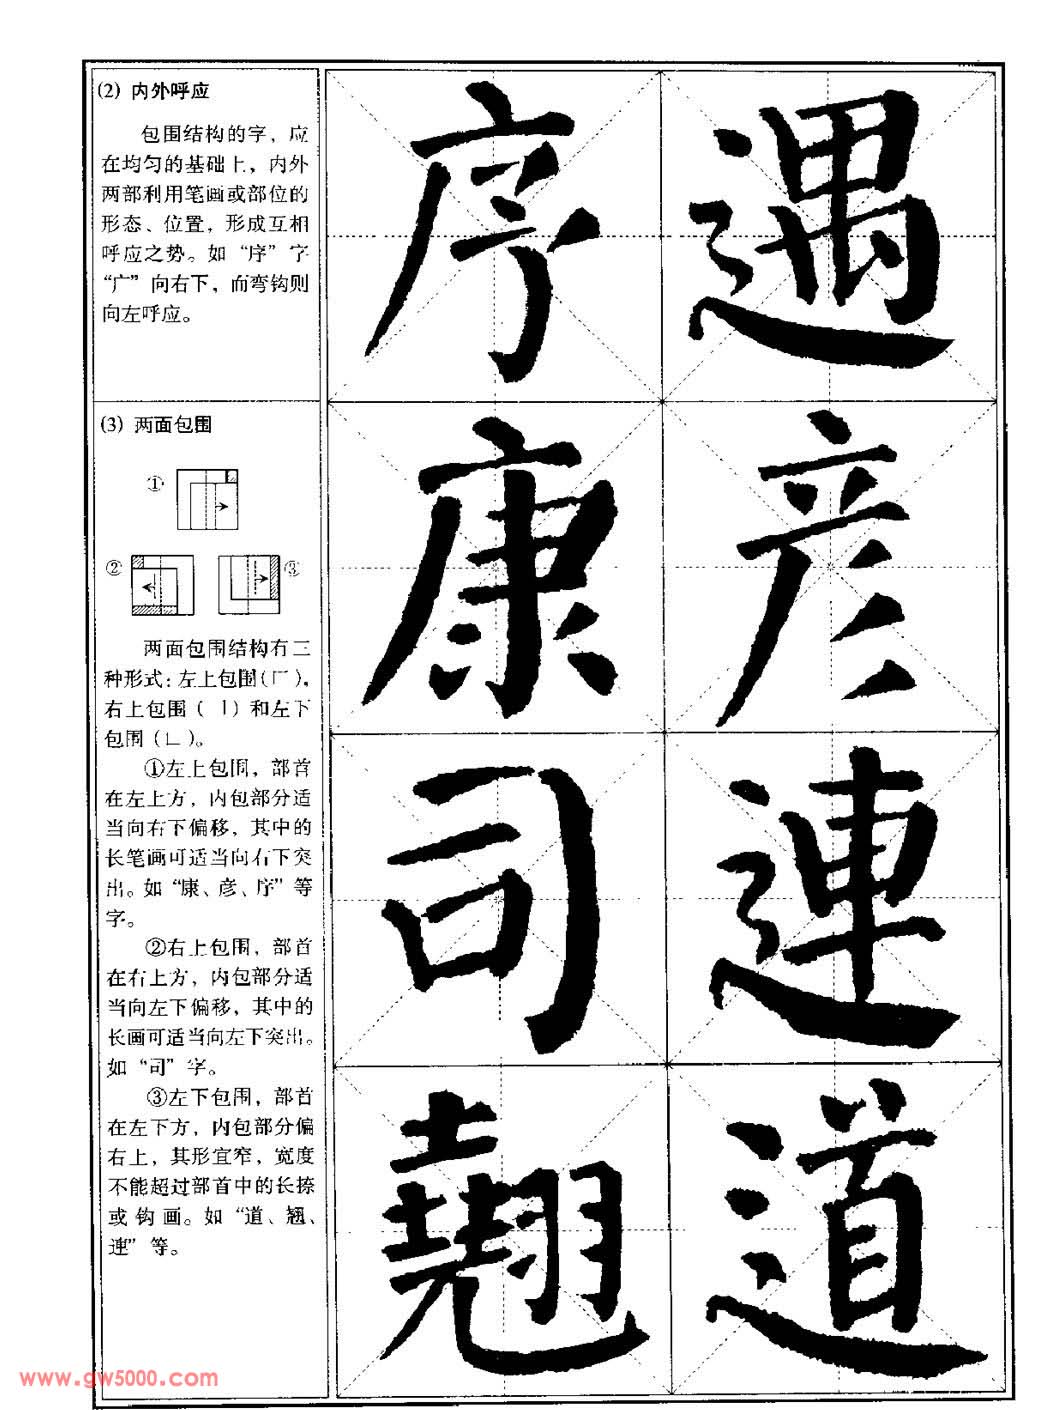 (2) 内外呼应
包围结构的字，应
在均匀的基础上，内外
两部利用笔画或部位的
形态、位置，形成互相
呼应之势。如“序”字
“广”向右下，而弯钩则
向左呼应。
(3) 两面包围
①
② ③
两面包围结构有三
种形式：左上包围(厂)，
右上包围（㇆）和左下
包围（㇄）。
①左上包围，部首
在左上方，内包部分适
当向右下偏移，其中的
长笔画可适当向右下突
出。如“康、彦、序”等
字。
②右上包围，部首
在右上方，内包部分适
当向左下偏移，其中的
长画可适当向左下突出。
如“司”字。
③左下包围，部首
在左下方，内包部分偏
右上，其形宜窄，宽度
不能超过部首中的长捺
或钩画。如“道、翘、
連”等。
序 遇
康 彦
司 連
翹 道
www.gw5000.com